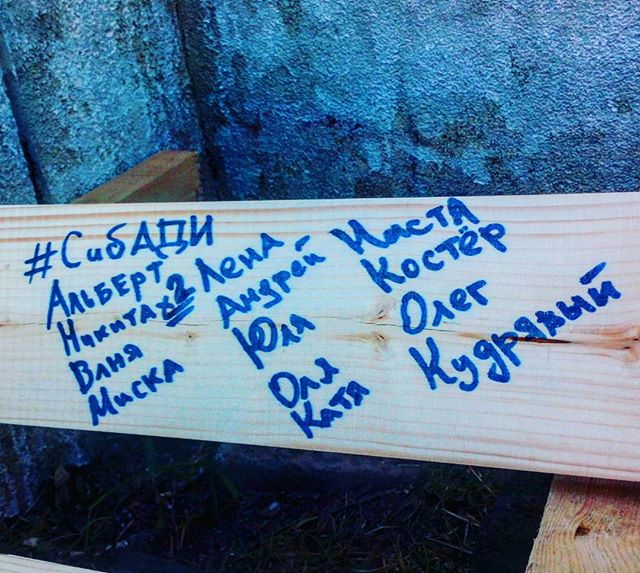 #СибАДИ
Альберт
Никита x2
Влня
Миска
Лена
Андрей
Юля
Оля
Катя
Настя
Костёр
Олег
Кудрявый